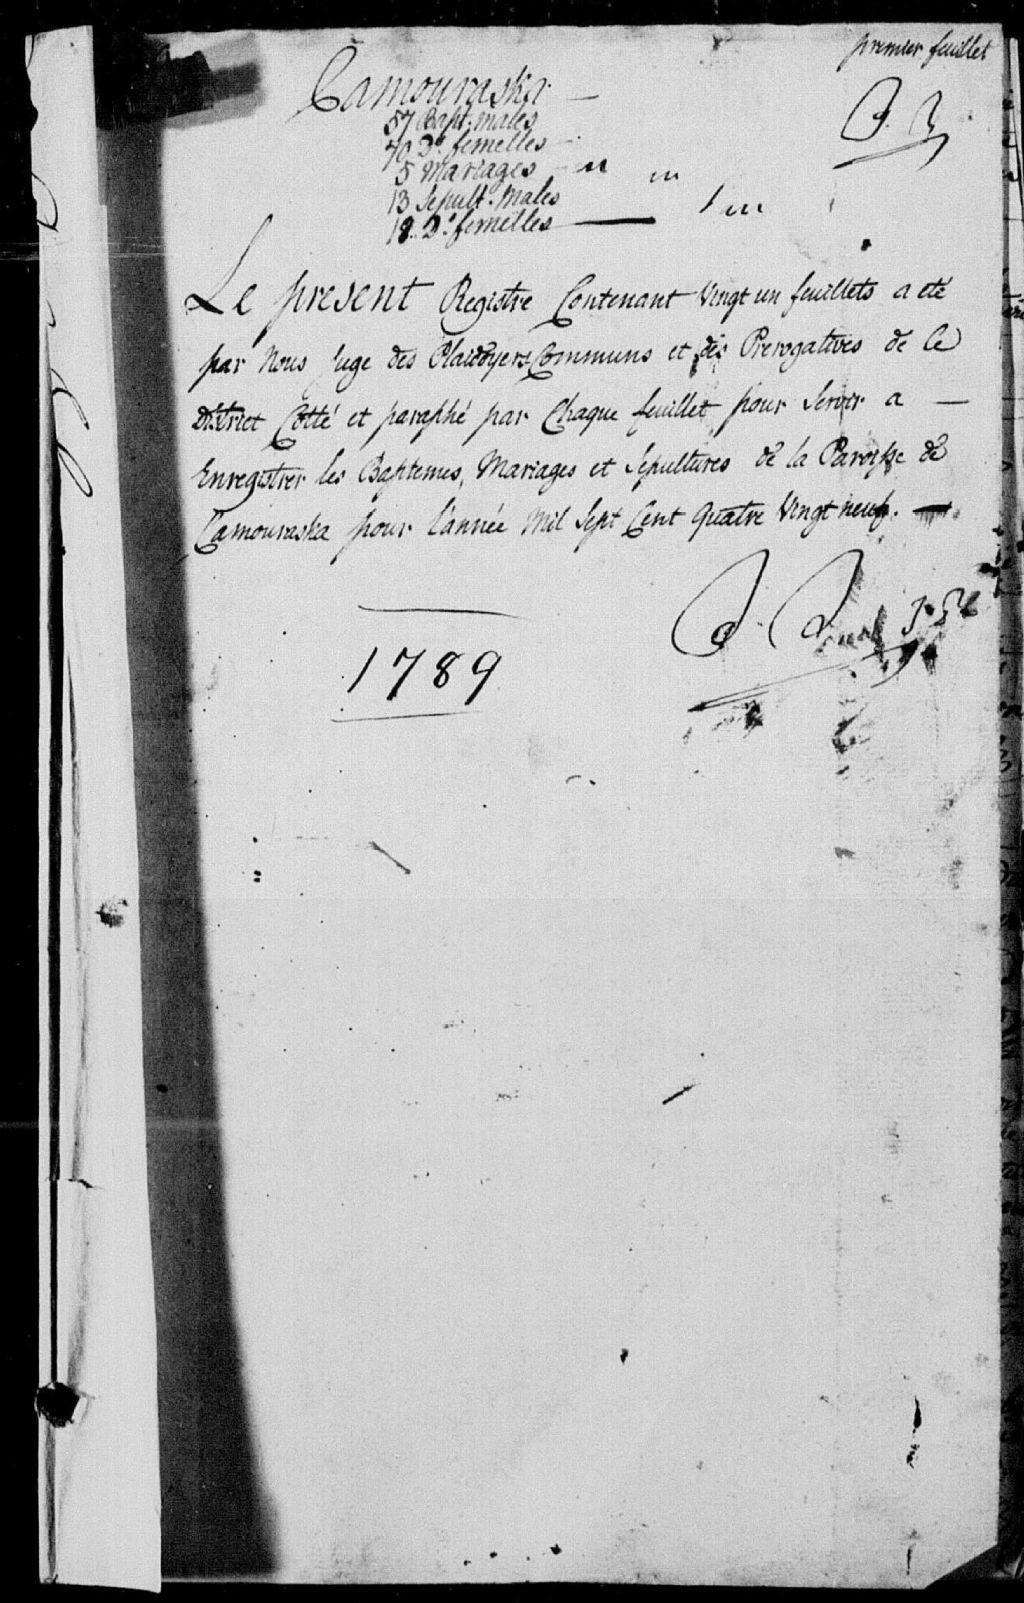 premier feuillet
Camouraska
57 Bapt. males
70 Do. femelles
5 Mariages
13 Sepult. Males
18 Do. femelles
Le present Registre Contenant Vingt un feuillets a eté
par Nous Juge des Plaidoyers Communs et des Prerogatives de ce
District Cotté et paraphé par Chaque feuillet pour Servir a
Enregistrer les Baptemes, Mariages et Sepultures de la Paroisse de
Camouraska pour l'année Mil Sept Cent Quatre Vingt neuf.
1789